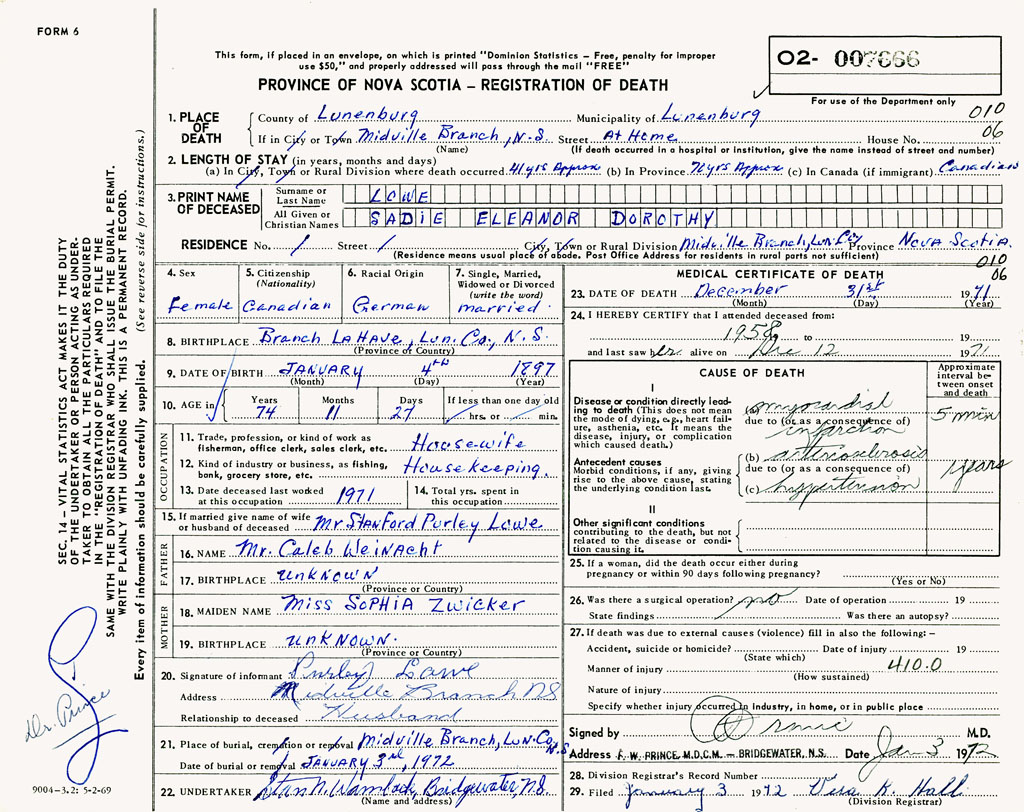 FORM 6
This form, if placed in an envelope, on which is printed "Dominion Statistics – Free, penalty for improper
use $50," and properly addressed will pass through the mail "FREE"
PROVINCE OF NOVA SCOTIA – REGISTRATION OF DEATH
02- 007666
For use of the Department only
010
06
1. PLACE OF DEATH
County of Lunenburg Municipality of Lunenburg
If in City or Town Midville Branch, N.S. Street At Home House No.
(Name) (If death occurred in a hospital or institution, give the name instead of street and number)
2. LENGTH OF STAY (in years, months and days)
(a) In City, Town or Rural Division where death occurred 41 yrs Approx (b) In Province 72 yrs Approx (c) In Canada (if immigrant) Canadian
3. PRINT NAME OF DECEASED
Surname or Last Name LOWE
All Given or Christian Names SADIE ELEANOR DOROTHY
RESIDENCE No. / Street / City, Town or Rural Division Midville Branch, Lun. Co Province Nova Scotia.
(Residence means usual place of abode. Post Office Address for residents in rural parts not sufficient)
010
06
4. Sex
Female
5. Citizenship (Nationality)
Canadian
6. Racial Origin
German
7. Single, Married, Widowed or Divorced (write the word)
married
8. BIRTHPLACE Branch LaHave, Lun. Co., N.S.
(Province or Country)
9. DATE OF BIRTH JANUARY 4th 1897
(Month) (Day) (Year)
10. AGE in Years 74 Months 11 Days 27 If less than one day old / hrs. or / min.
OCCUPATION
11. Trade, profession, or kind of work as
fisherman, office clerk, sales clerk, etc. Housewife
12. Kind of industry or business, as fishing,
bank, grocery store, etc. Housekeeping
13. Date deceased last worked
at this occupation 1971
14. Total yrs. spent in
this occupation
15. If married give name of wife
or husband of deceased Mr Stanford Purley Lowe
FATHER
16. NAME Mr. Caleb Weinacht
17. BIRTHPLACE Unknown
(Province or Country)
MOTHER
18. MAIDEN NAME Miss Sophia Zwicker
19. BIRTHPLACE Unknown.
(Province or Country)
20. Signature of informant Purley Lowe
Address Midville Branch NS
Relationship to deceased Husband
21. Place of burial, cremation or removal Midville Branch, Lun. Co. N.S
Date of burial or removal JANUARY 3rd, 1972
22. UNDERTAKER Bridgewater, N.S.
(Name and address)
MEDICAL CERTIFICATE OF DEATH
23. DATE OF DEATH December 31st 1971
(Month) (Day) (Year)
24. I HEREBY CERTIFY that I attended deceased from:
1958 to 19
and last saw her alive on Dec 12 1971
CAUSE OF DEATH
Approximate interval between onset and death
I
Disease or condition directly leading to death (This does not mean the mode of dying, e.g., heart failure, asthenia, etc. It means the disease, injury, or complication which caused death.)
(a) myocardial
due to (or as a consequence of)
infarction
5 min
Antecedent causes
Morbid conditions, if any, giving rise to the above cause, stating the underlying condition last.
(b) arteriosclerosis
due to (or as a consequence of)
(c) hypertension
years
II
Other significant conditions
contributing to the death, but not related to the disease or condition causing it.
25. If a woman, did the death occur either during
pregnancy or within 90 days following pregnancy?
(Yes or No)
26. Was there a surgical operation? no Date of operation 19
State findings Was there an autopsy?
27. If death was due to external causes (violence) fill in also the following: –
Accident, suicide or homicide? Date of injury 19
(State which)
Manner of injury 410.0
(How sustained)
Nature of injury
Specify whether injury occurred in industry, in home, or in public place
Signed by M.D.
Address F. W. PRINCE M.D.C.M. – BRIDGEWATER, N.S. Date Jan 3 1972
28. Division Registrar's Record Number
29. Filed January 3 1972 Vera K. Hall
(Division Registrar)
SEC. 14 – VITAL STATISTICS ACT MAKES IT THE DUTY
OF THE UNDERTAKER OR PERSON ACTING AS UNDER-
TAKER TO OBTAIN ALL THE PARTICULARS REQUIRED
IN THE "REGISTRATION OF DEATH" AND TO FILE THE
SAME WITH THE DIVISION REGISTRAR WHO SHALL ISSUE THE BURIAL PERMIT.
WRITE PLAINLY WITH UNFADING INK. THIS IS A PERMANENT RECORD.
Every item of information should be carefully supplied. (See reverse side for instructions.)
Dr. Prince
9004-3.2: 5-2-69